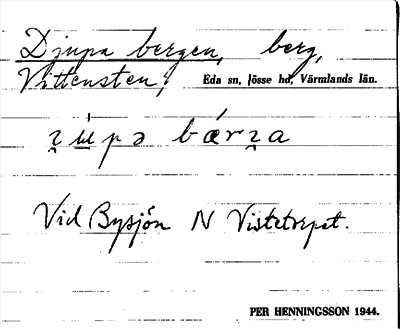 Djupa bergen, berg,
Vittensten, Eda sn, Jösse hd, Värmlands län.
Vid Bysjön N Vistetorpet.
PER HENNINGSSON 1944.